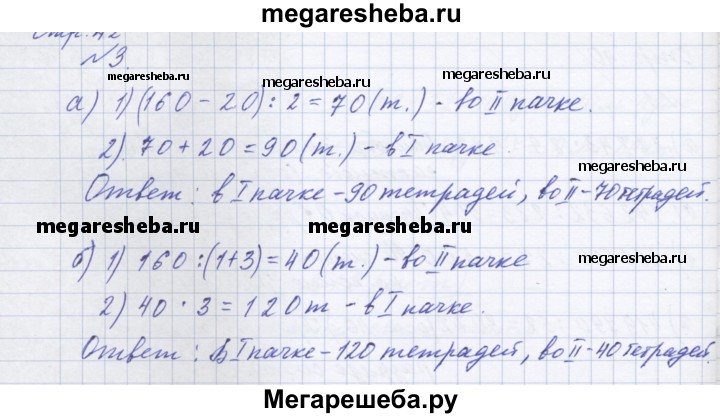 megaresheba.ru
Стр. 42
№3.
megaresheba.ru megaresheba.ru megaresheba.ru
а) 1) (160 - 20) : 2 = 70 (т.) - во II пачке.
2) 70 + 20 = 90 (т.) - в I пачке.
Ответ : в I пачке - 90 тетрадей, во II - 70 тетрадей.
megaresheba.ru megaresheba.ru
б) 1) 160 : (1+3) = 40 (т.) - во II пачке
megaresheba.ru
2) 40 · 3 = 120 т - в I пачке.
Ответ : в I пачке - 120 тетрадей, во II - 40 тетрадей.
Мегарешеба.ру